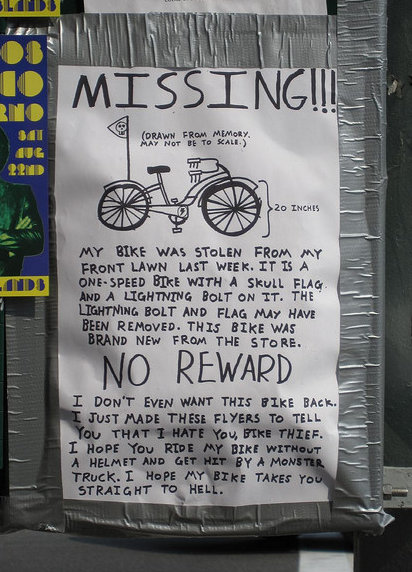 SLANDS
OS
CO
RNO
SAT
AUG
22ND
LANDS
MISSING!!!
(DRAWN FROM MEMORY.
MAY NOT BE TO SCALE.)
20 INCHES
MY BIKE WAS STOLEN FROM MY
FRONT LAWN LAST WEEK. IT IS A
ONE-SPEED BIKE WITH A SKULL FLAG
AND A LIGHTNING BOLT ON IT. THE
LIGHTNING BOLT AND FLAG MAY HAVE
BEEN REMOVED. THIS BIKE WAS
BRAND NEW FROM THE STORE.
NO REWARD
I DON'T EVEN WANT THIS BIKE BACK.
I JUST MADE THESE FLYERS TO TELL
YOU THAT I HATE YOU, BIKE THIEF.
I HOPE YOU RIDE MY BIKE WITHOUT
A HELMET AND GET HIT BY A MONSTER
TRUCK. I HOPE MY BIKE TAKES YOU
STRAIGHT TO HELL.